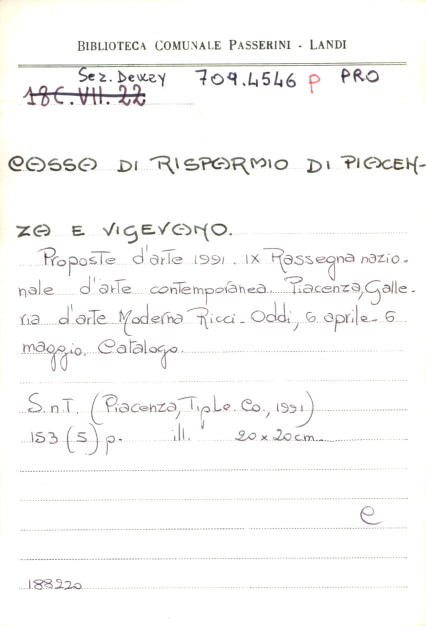 BIBLIOTECA COMUNALE PASSERINI - LANDI
Sez. Dewey 709.4546 p PRO
18C.VII.22
CASSA DI RISPARMIO DI PIACEN-
ZA E VIGEVANO.
Proposte d'arte 1991. IX Rassegna nazio-
nale d'arte contemporanea. Piacenza, Galle-
ria d'arte Moderna Ricci-Oddi, 6 aprile-6
maggio. Catalogo.
S.n.T. (Piacenza, Tip.Le.Co., 1991)
153 (5) p. ill. 20x20 cm.
e
188220